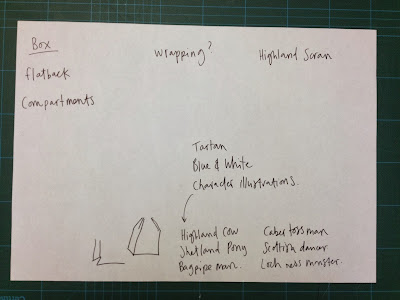 Box
Flatback
Compartments
Wrapping?
Highland Scran
Tartan
Blue & White
Character illustrations.
Highland Cow
Shetland Pony
Bagpipe man.
Caber toss man
Scottish dancer
Loch ness monster.